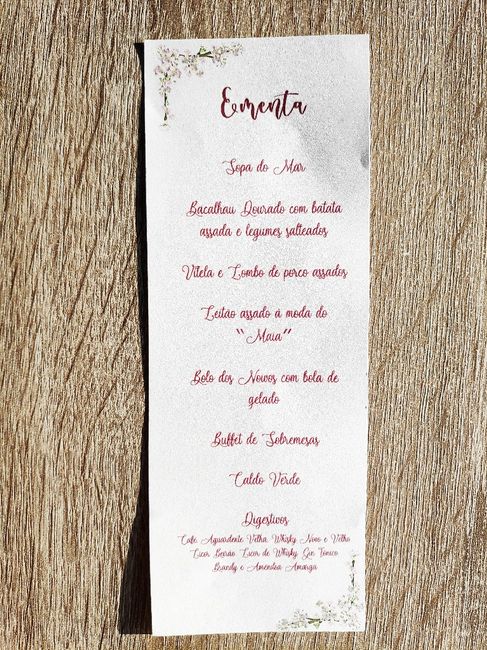 Ementa
Sopa do Mar
Bacalhau Dourado com batata
assada e legumes salteados
Vitela e Lombo de porco assados
Leitão assado á moda do
"Maia"
Bolo dos Noivos com bola de
gelado
Buffet de Sobremesas
Caldo Verde
Digestivos
Café, Aguardente Velha, Whisky Novo e Velho
Licor Beirão, Licor de Whisky, Gin Tónico
Brandy e Amendoa Amarga